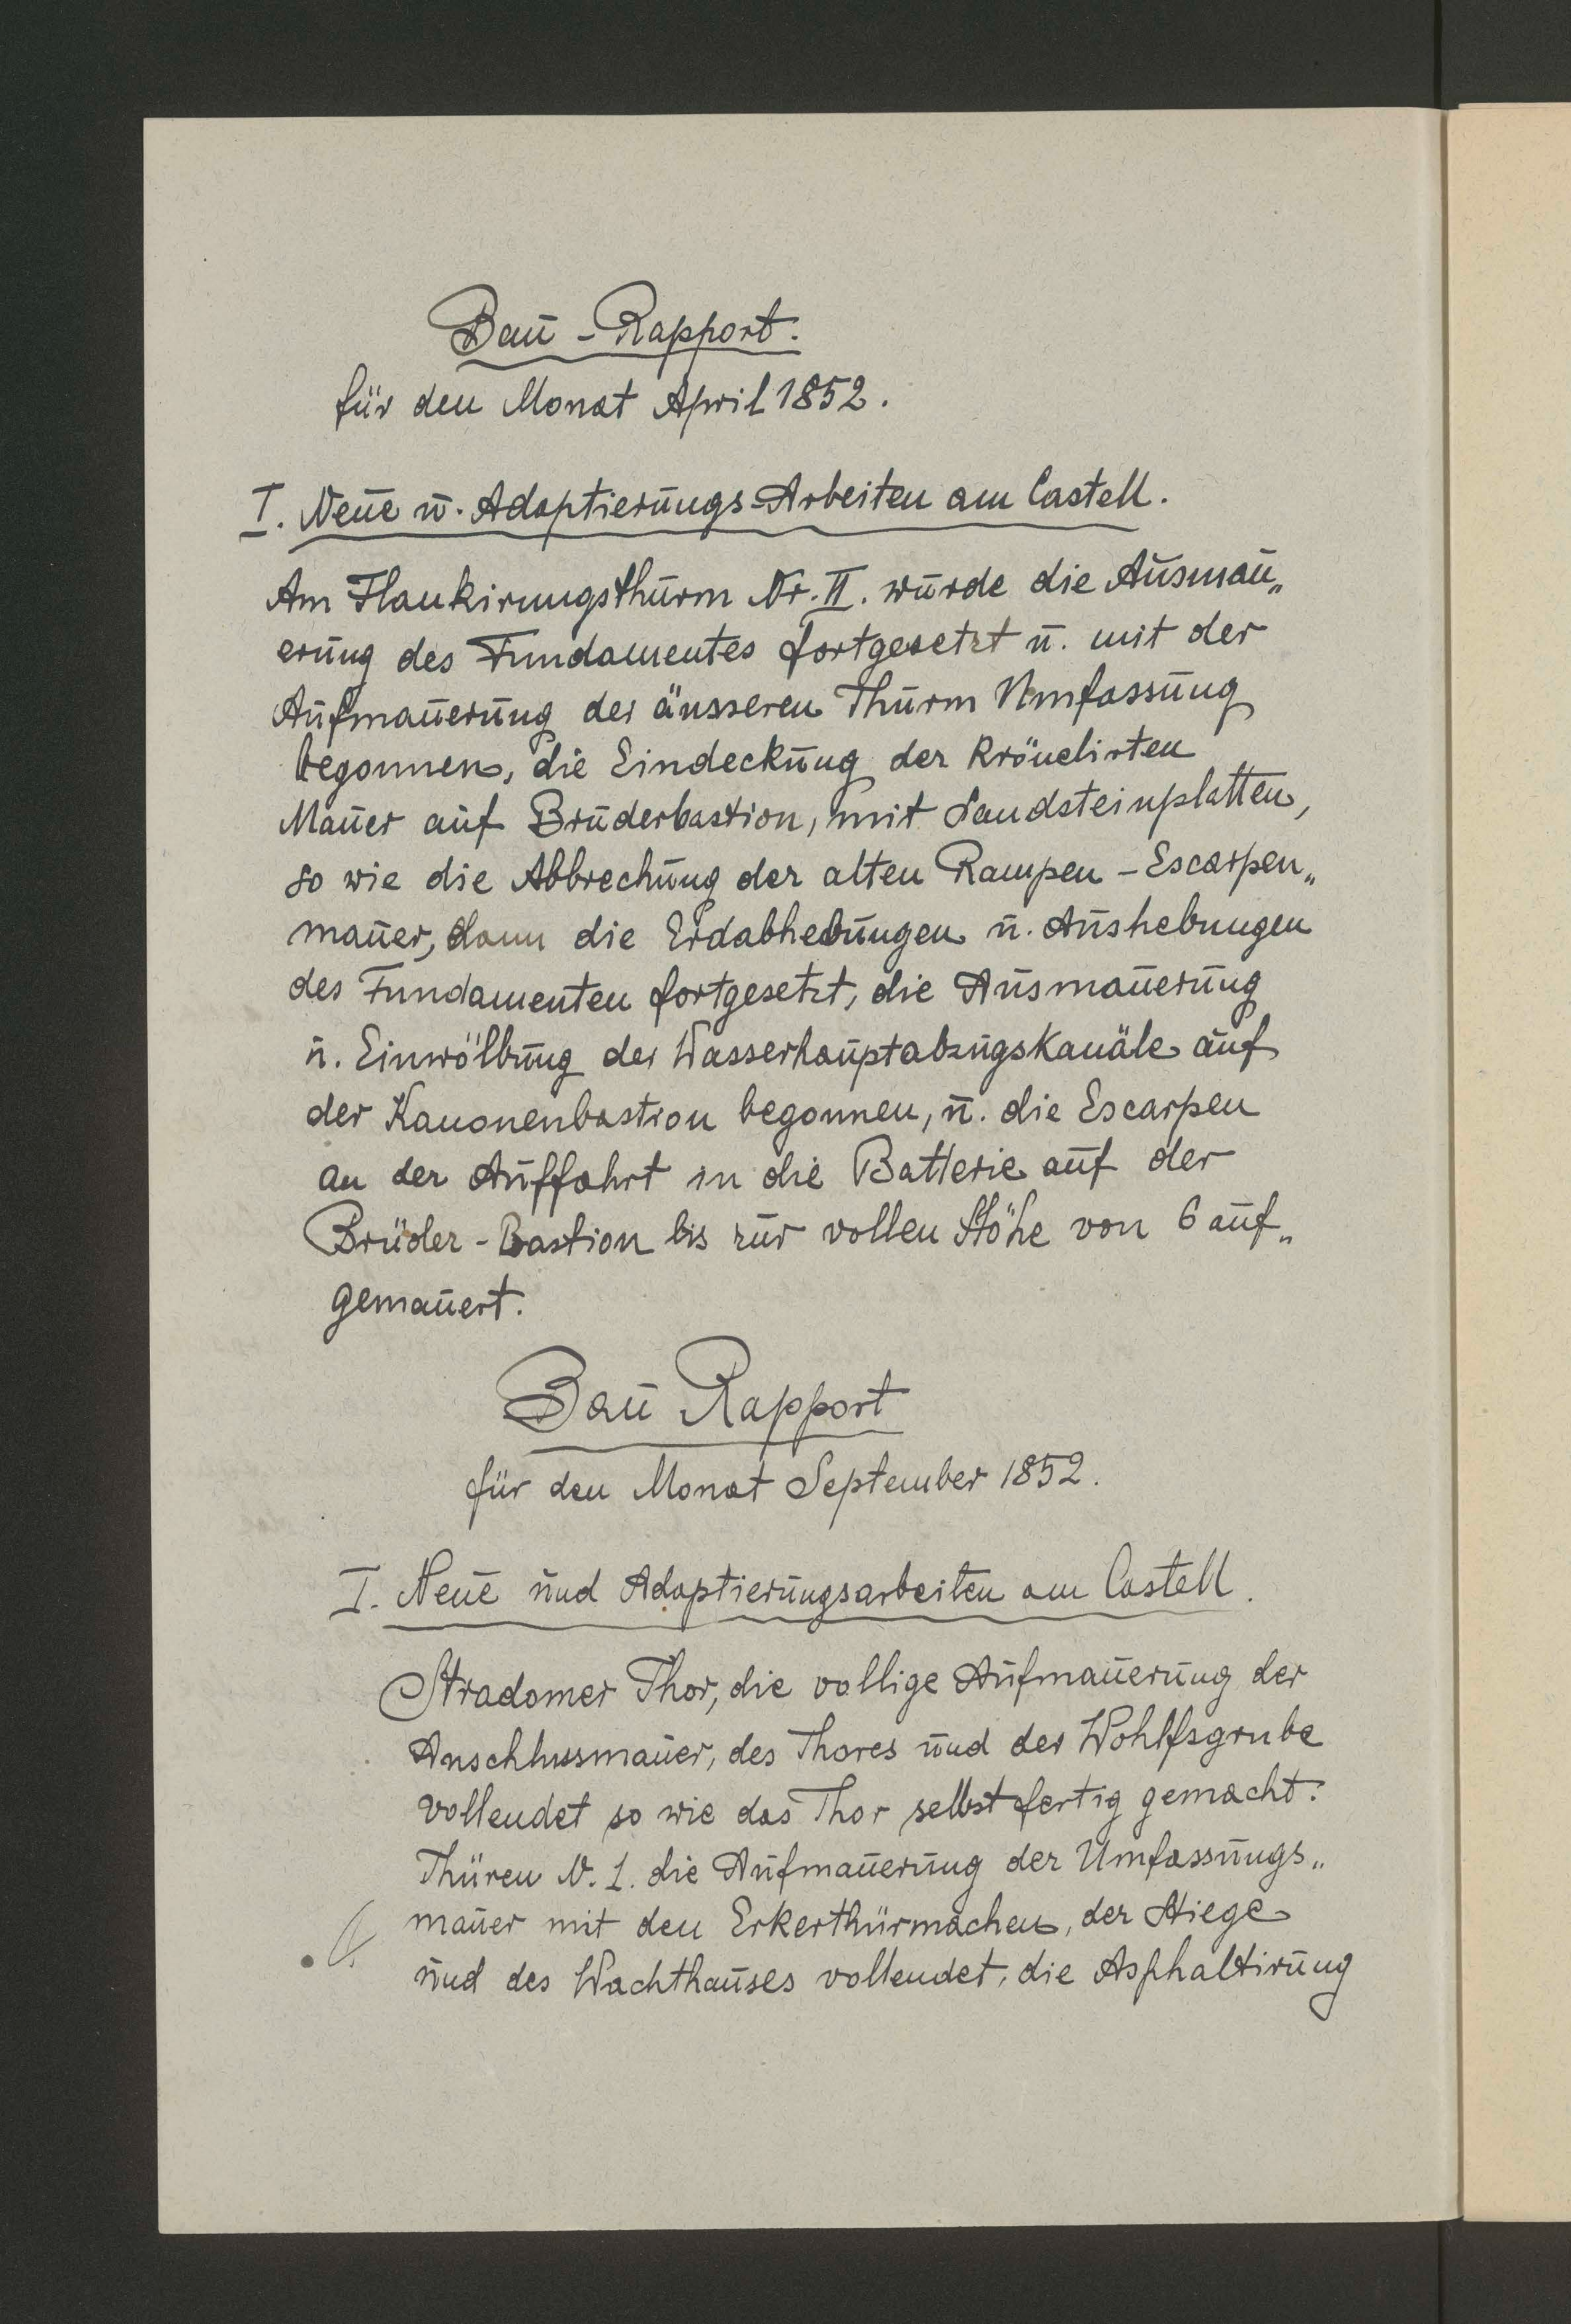 Bau-Rapport.
für den Monat April 1852.
I. Neue u. Adaptierungs-Arbeiten am Castell.
Am Flankirungsthurm Nr. II. wurde die Ausmau„
erung des Fundamentes fortgesetzt u. mit der
Aufmauerung der äusseren Thurm Umfassung
begonnen, die Eindeckung der krönelirten
Mauer auf Brüderbastion, mit Sandsteinplatten,
so wie die Abbrechung der alten Rampen-Escarpen„
mauer, dann die Erdabhebungen u. Aushebungen
des Fundamenten fortgesetzt, die Ausmauerung
u. Einwölbung der Wasserhauptabzugskanäle auf
der Kanonenbastion begonnen, u. die Escarpen
an der Auffahrt in die Batterie auf der
Brüder-Bastion bis zur vollen Höhe von 6 auf„
gemauert.
Bau Rapport
für den Monat September 1852.
I. Neue und Adaptierungsarbeiten am Castell.
Stradomer Thor, die vollige Aufmauerung der
Anschlussmauer, des Thores und der Wohlfsgrube
vollendet so wie das Thor selbst fertig gemacht.
Thüren N. 1. die Aufmauerung der Umfassungs„
mauer mit den Erkerthürmachen, der Stiege
und des Wachthauses vollendet, die Asphaltirung